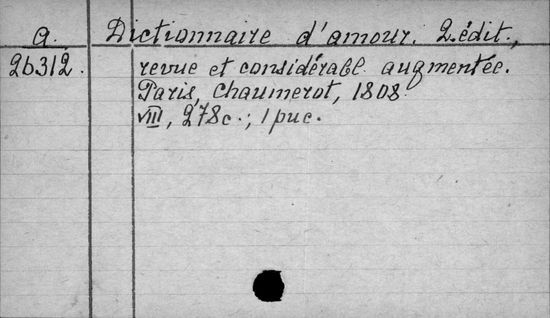 a. Dictionnaire d'amour. 2.édit.,
26312. revue et considérabl. augmentée.
Paris, Chaumerot, 1808.
VIII, 278c.; 1 рис.